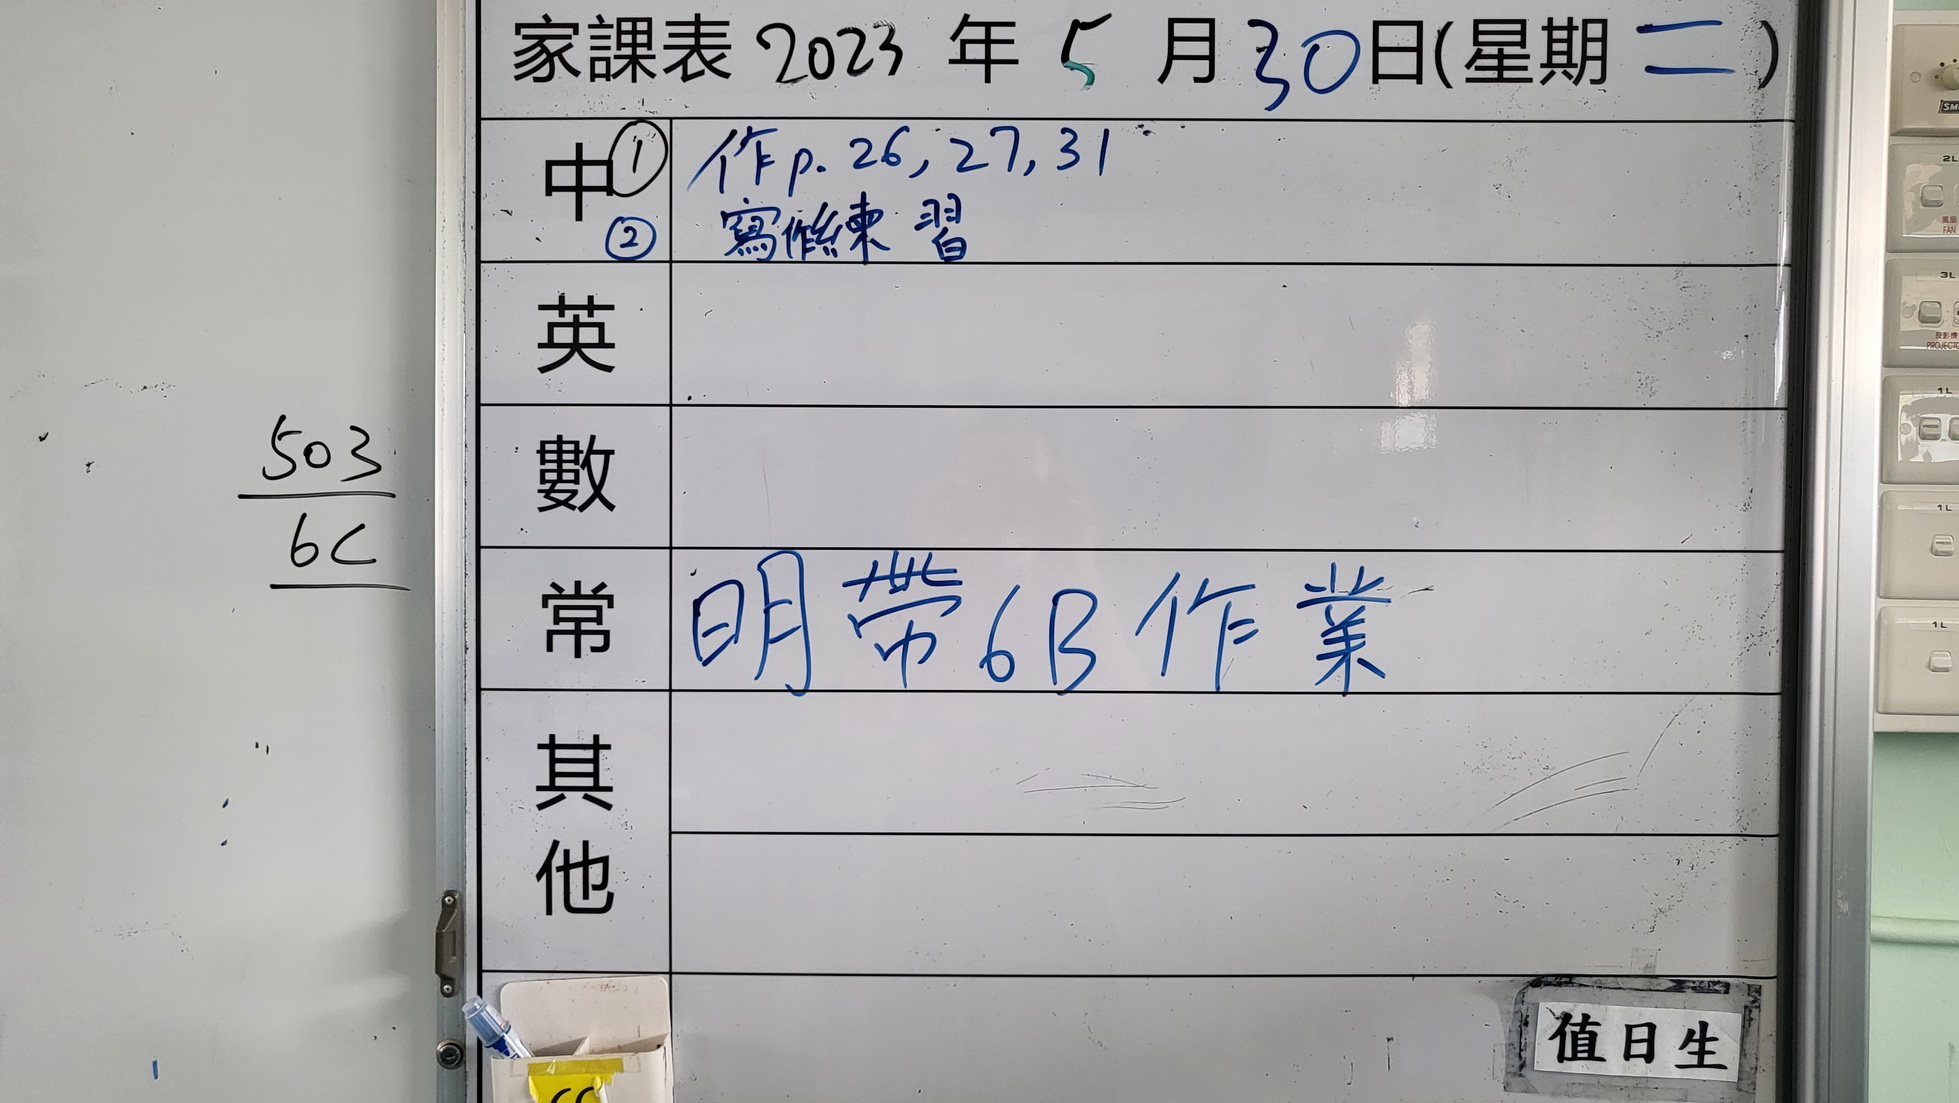 家課表 2023 年 5 月 30 日(星期 二 )
中 ① 作 p. 26, 27, 31
② 寫作練習
英
數
常 明帶 6B 作業
其他
503
6C
值日生
2L
風扇
FAN
3L
投影機
1L
1L
1L